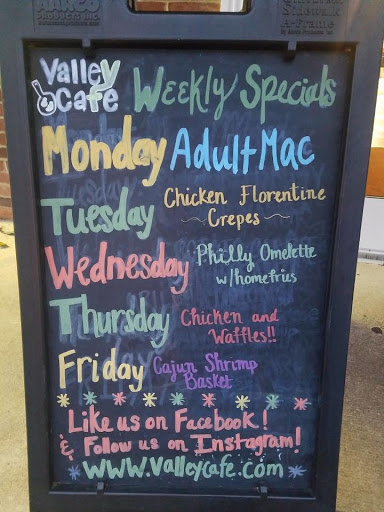 MARCO
Sidewalk
A-Frame
Valley Cafe
Weekly Specials
Monday Adult Mac
Tuesday Chicken Florentine
Crepes
Wednesday Philly Omelette
w/homefries
Thursday Chicken and
Waffles!!
Friday Cajun Shrimp
Basket
Like us on Facebook!
& Follow us on Instagram!
www.valleycafe.com